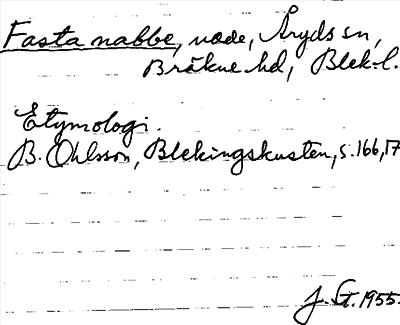 Fasta nabbe, udde, Åryds sn,
Bräkne hd, Blek. l.
Etymologi.
B. Ohlsson, Blekingskusten, s. 166, 17
J. St. 1955.